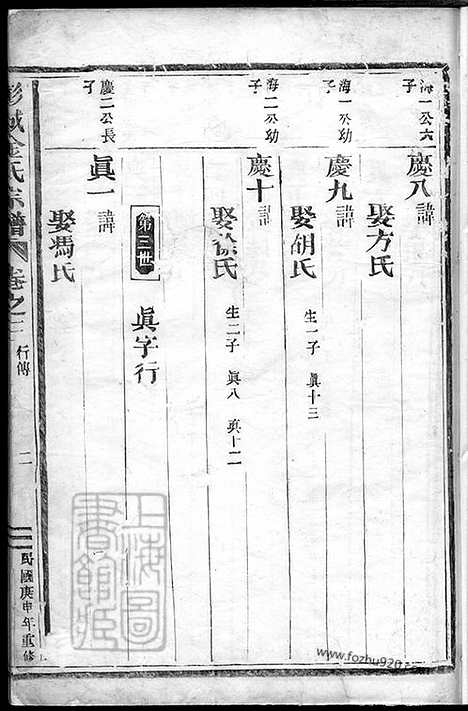 海一公六子
慶八諱
娶方氏
海一公幼子
慶九諱
娶胡氏
生一子 眞十三
海二公幼子
慶十諱
娶徐氏
生二子 眞八 眞十二
第三世
眞字行
慶二公長子
眞一諱
娶馮氏
彭城金氏宗譜
卷之
行傳
二
民國庚申年重修
上海圖書館藏
www.fozhu920.com